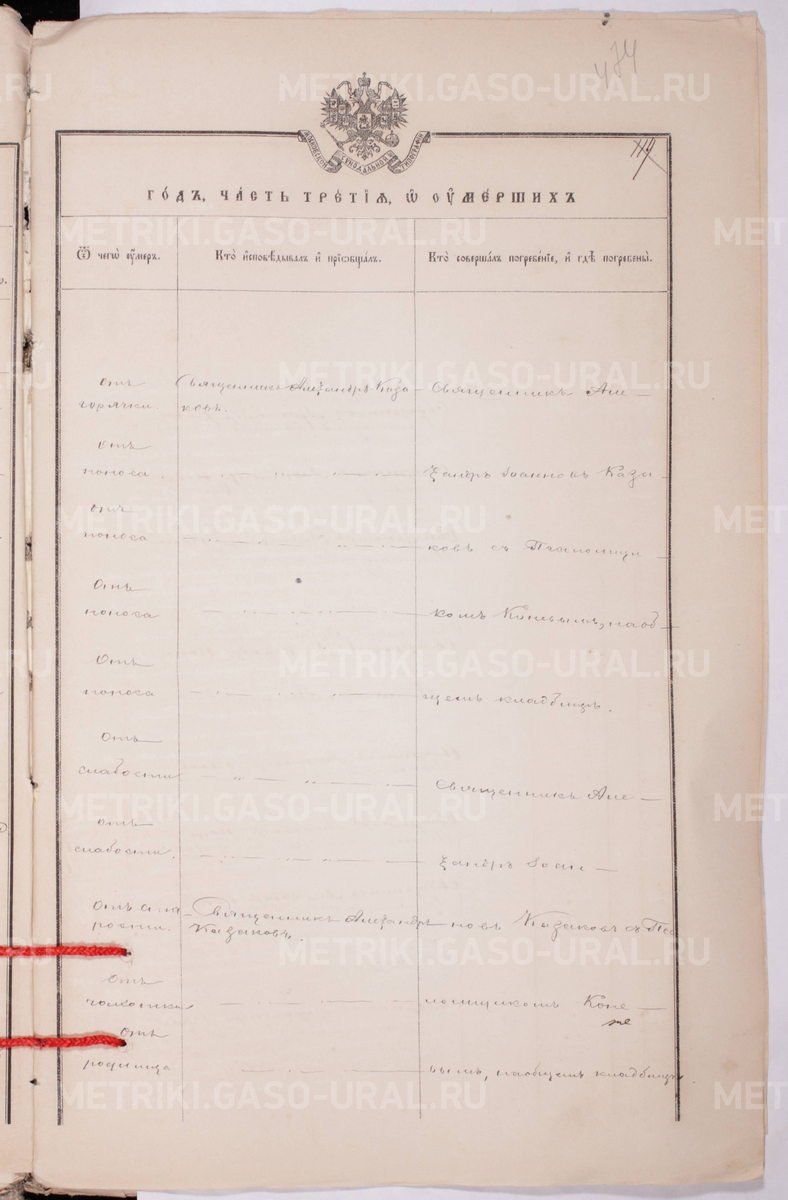 474
119
МОСКОВСКОЙ СУНОДАЛЬНОЙ ТИПОГРАФІИ
ГОДЪ, ЧАСТЬ ТРЕТІѦ, Ѡ ОУМЕРШИХЪ
Ѿ чегѡ оумеръ.
Кто исповѣдывалъ и прїобщалъ.
Кто совершалъ погребенїе, и гдѣ погребены.
отъ
горячки.
Священникъ Алеѯандръ Каза-
ковъ.
Священникъ Але-
отъ
поноса.
ѯандръ Іоанновъ Каза-
отъ
поноса
ковъ съ Псаломщи-
Отъ
поноса
комъ наоб-
Отъ
поноса
щемъ кладбищѣ.
Отъ
слабости
Священникъ Але-
отъ
слабости.
ѯандръ Іоан-
Отъ ста-
рости.
Священникъ Алеѯандръ
Казаковъ.
новъ Казаковъ съ Пса
Отъ
ломщикомъ Коне-
Отъ
родимца
вымъ, наобщемъ кладбищѣ
METRIKI.GASO-URAL.RU